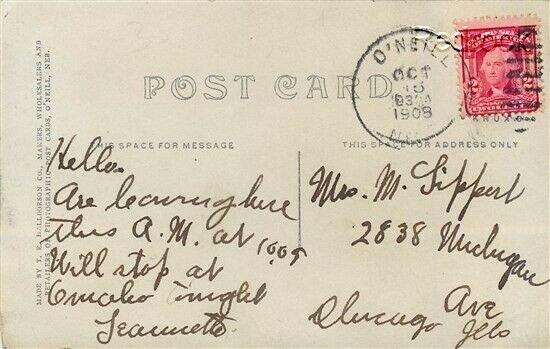 POST CARD
O'NEILL
OCT
15
1908
THIS SPACE FOR MESSAGE
THIS SPACE FOR ADDRESS ONLY
Hello.
Are leaving here
this A.M. at 1005
Will stop at
Omaho tonight
Jeannette
Mrs. M. Sippert
2838 Michigan
Ave
Chicago
Ills
MADE BY T. E. HALLDORSON CO., MAKERS, WHOLESALERS AND
RETAILERS OF PHOTOGRAPHIC POST CARDS, O'NEILL, NEB.